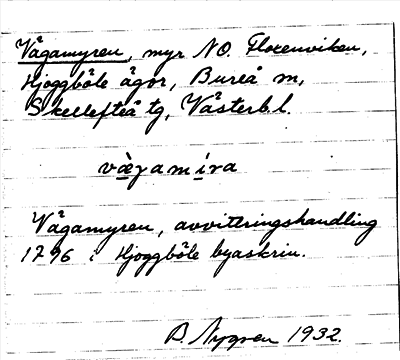 Vågamyren, myr NO. Florenviken,
Hjoggböle ägor, Bureå sn,
Skellefteå tg, Västerb. l.
væ̀gamíra
Vågamyren, avvittringshandling
1796 i Hjoggböle byaskrin.
B. Nygren 1932.